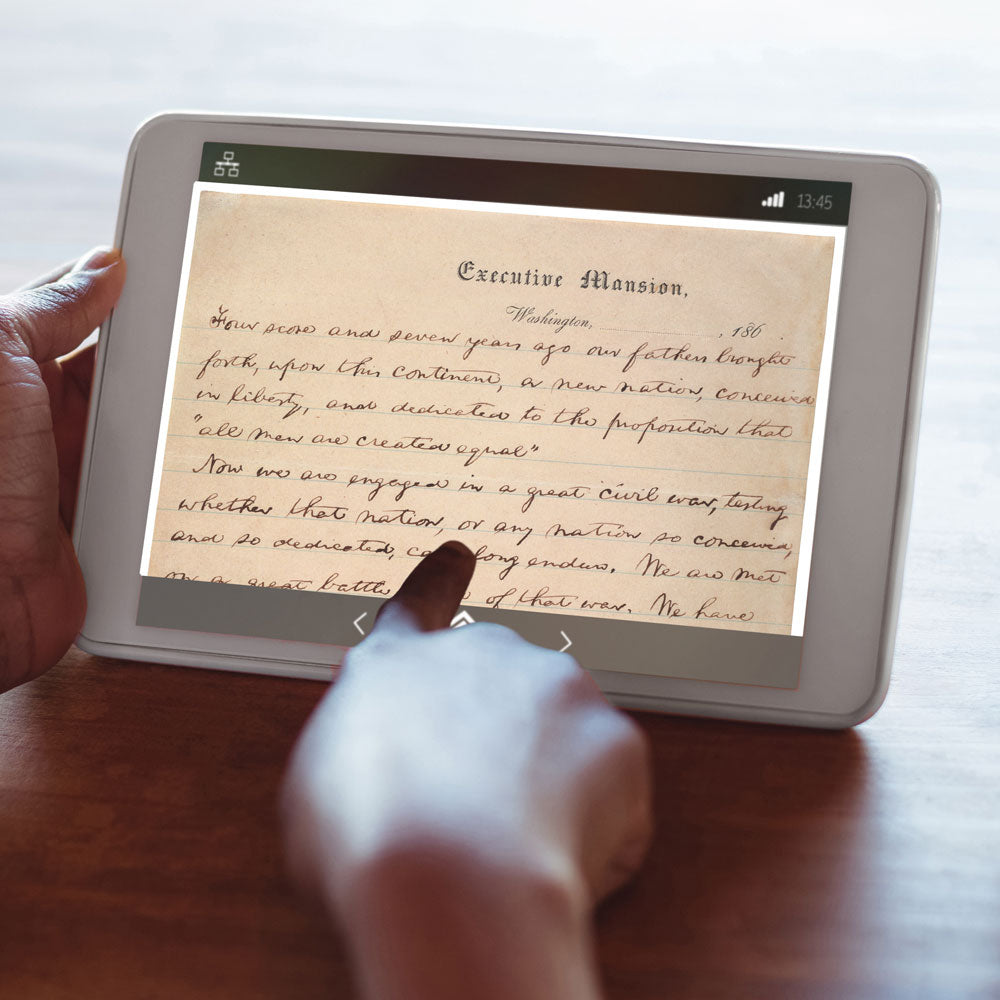 13:45
Executive Mansion,
Washington, , 186 .
Four score and seven years ago our fathers brought
forth, upon this continent, a new nation, conceived
in liberty, and dedicated to the proposition that
"all men are created equal"
Now we are engaged in a great civil war, testing
whether that nation, or any nation so conceived,
and so dedicated, long endure. We are met
on a great battle of that war. We have